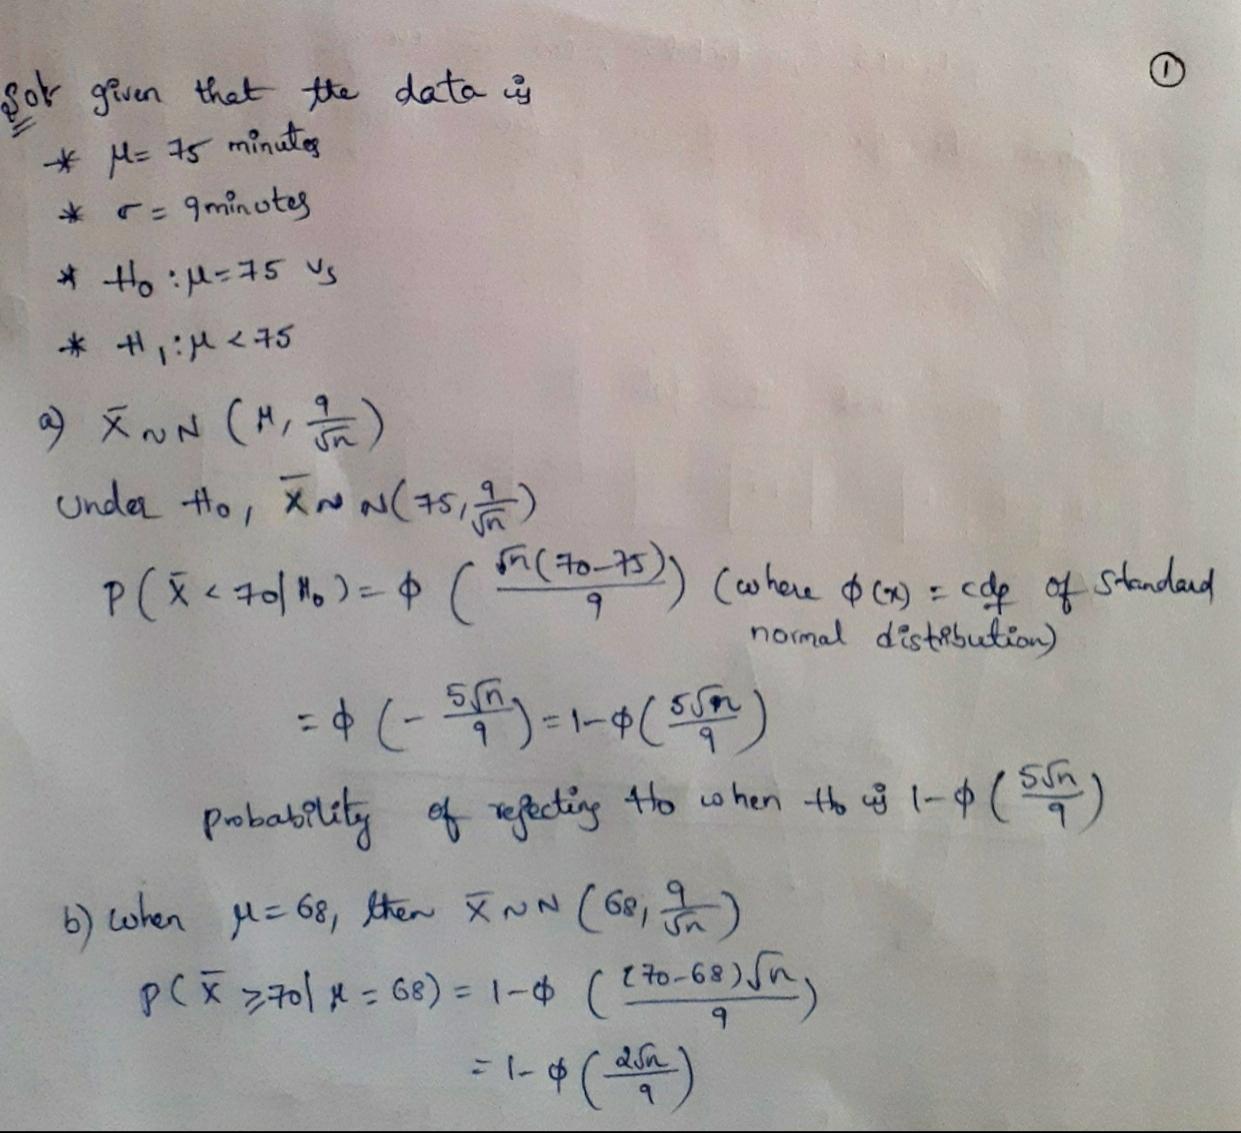 ①
Sol: given that the data is
* μ= 75 minutes
* σ = 9minutes
* H₀ : μ=75 vs
* H₁ : μ <75
a) X̄ ~ N (μ, 9/√n)
Under H₀, X̄ ~ N(75, 9/√n)
P( X̄ < 70 | H₀ ) = ϕ ( √n(70-75)/9 ) (where ϕ(x) = cdf of standard
normal distribution)
= ϕ (- 5√n/9 ) = 1-ϕ( 5√n/9 )
probability of rejecting H₀ when H₀ is 1-ϕ ( 5√n/9 )
b) when μ= 68, then X̄ ~ N ( 68, 9/√n )
P( X̄ ≥70 | μ = 68) = 1-ϕ ( (70-68)√n/9 )
= 1- ϕ ( 2√n/9 )